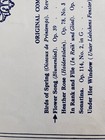 ORIGINAL COM
Birds of Spring (Oiseaux de Printemps).
Flower Song (Blumenlied). Op. 39
Heather Rose (Heideröslein). Op. 78, No. 3
In Rank and File (In Reih und Glied). Op.
Sonatina. Op. 214, No. 2, in G
Under Her Window (Unter Liebchens Fenster)